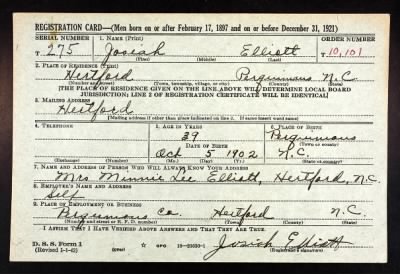 REGISTRATION CARD—(Men born on or after February 17, 1897 and on or before December 31, 1921)
SERIAL NUMBER 1. NAME (Print) ORDER NUMBER
T 275 Josiah Elliott T 10,101
(First) (Middle) (Last)
2. PLACE OF RESIDENCE (Print)
Hertford Perquimans N.C.
(Number and street) (Town, township, village, or city) (County) (State)
[THE PLACE OF RESIDENCE GIVEN ON THE LINE ABOVE WILL DETERMINE LOCAL BOARD
JURISDICTION; LINE 2 OF REGISTRATION CERTIFICATE WILL BE IDENTICAL]
3. MAILING ADDRESS
Hertford
[Mailing address if other than place indicated on line 2. If same insert word same]
4. TELEPHONE 5. AGE IN YEARS 6. PLACE OF BIRTH
39 Perquimans
DATE OF BIRTH (Town or county)
Oct 5 1902 N.C.
(Exchange) (Number) (Mo.) (Day) (Yr.) (State or country)
7. NAME AND ADDRESS OF PERSON WHO WILL ALWAYS KNOW YOUR ADDRESS
Mrs Minnie Lee Elliott, Hertford, N.C.
8. EMPLOYER'S NAME AND ADDRESS
Self
9. PLACE OF EMPLOYMENT OR BUSINESS
Perquimans Co. Hertford N.C.
(Number and street or R. F. D. number) (Town) (County) (State)
I AFFIRM THAT I HAVE VERIFIED ABOVE ANSWERS AND THAT THEY ARE TRUE.
D. S. S. Form 1
(Revised 1-1-42) (over) GPO 16—21630-1 Josiah Elliott